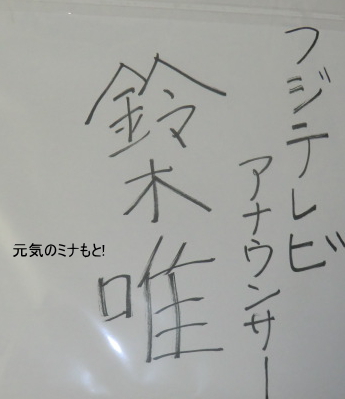 フジテレビ
アナウンサー
鈴木唯
元気のミナもと!